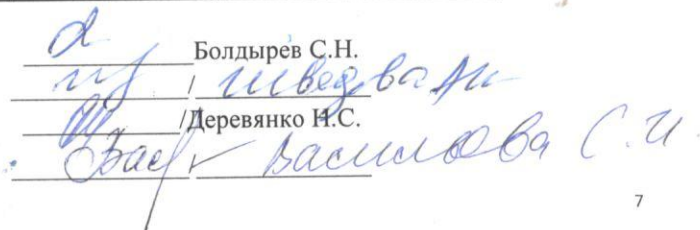 Болдырев С.Н.
/ Шведова
/Деревянко Н.С.
Василова С.И.
7